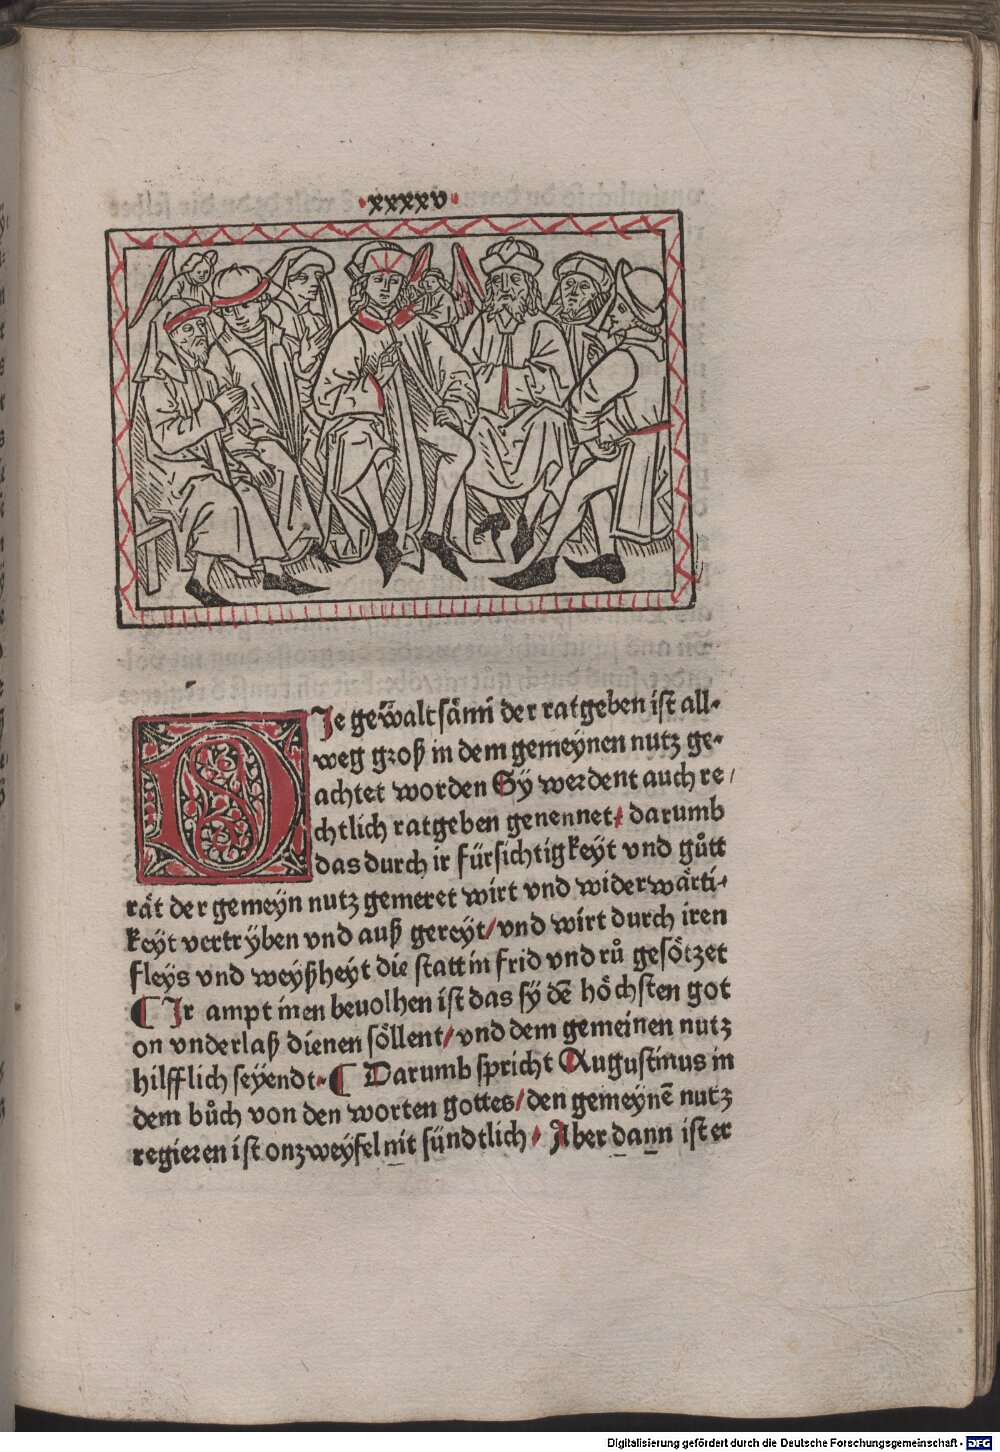 ·xxxxv·
DJe gewaltsämi der ratgeben ist all-
weg groß in dem gemeynen nutz ge-
achtet worden Sy werdent auch re/
chtlich ratgeben genennet/ darumb
das durch ir fürsichtigkeyt vnd gůtt
rät der gemeyn nutz gemeret wirt vnd widerwärti-
keyt vertryben vnd auß gereyt/ vnd wirt durch iren
fleys vnd weyßheyt die statt in frid vnd rů gesötzet
¶ Jr ampt inen beuolhen ist das sÿ dē höchsten got
on vnderlaß dienen söllent/ vnd dem gemeinen nutz
hilfflich seyendt· ¶ Darumb spricht Augustinus in
dem bůch von den worten gottes/ den gemeynē nutz
regieren ist onzweyfel nit sündtlich/ Aber dann ist er
Digitalisierung gefördert durch die Deutsche Forschungsgemeinschaft - DFG